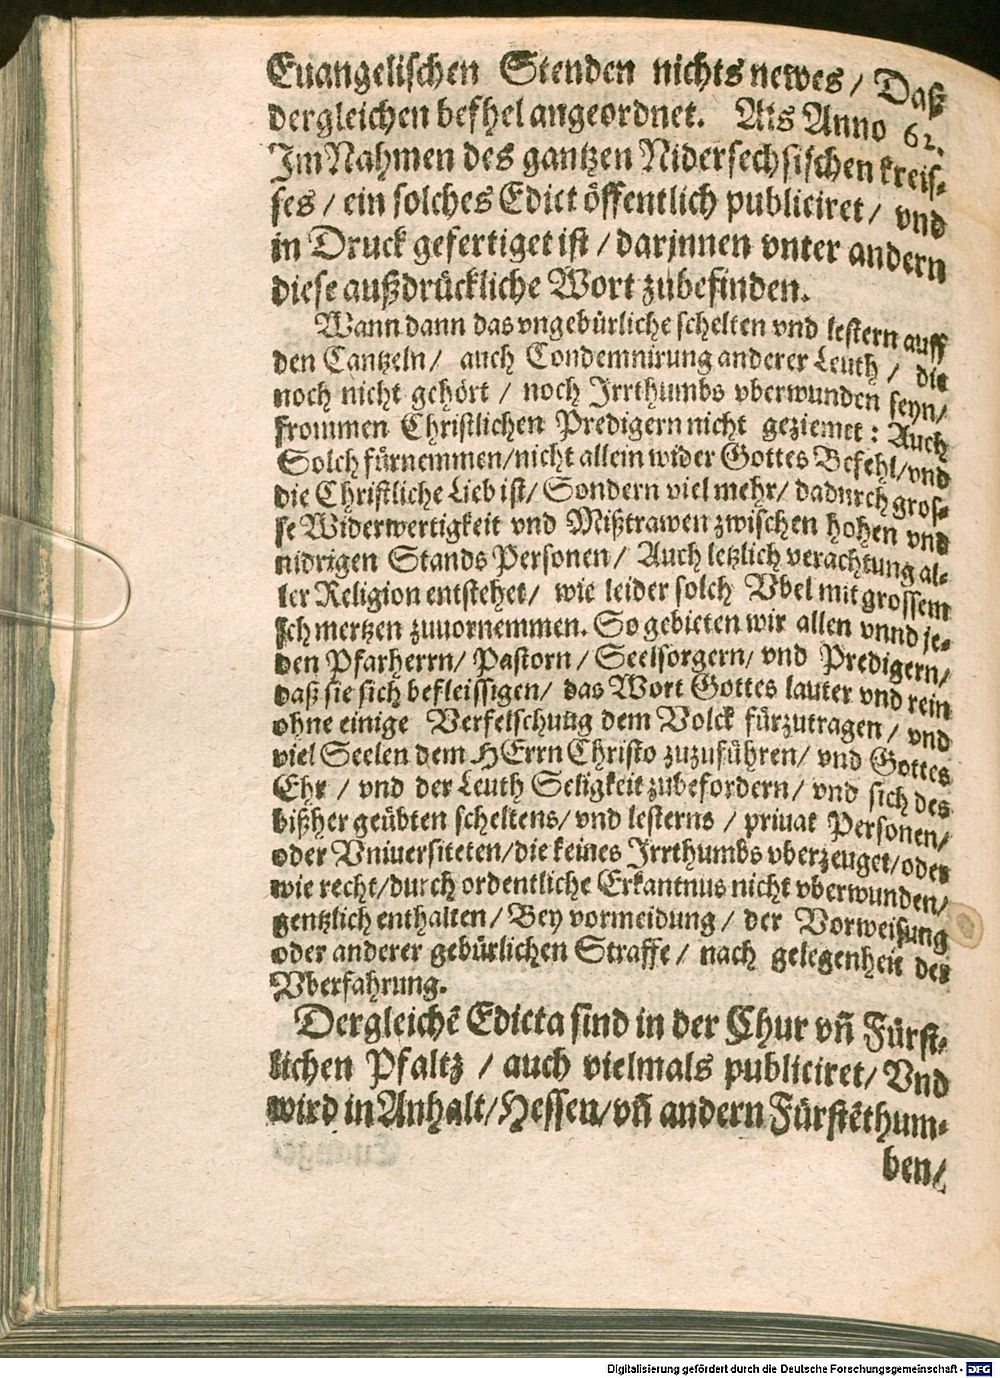 Euangelischen Stenden nichts newes / Daß
dergleichen befhel angeordnet. Als Anno 62.
Im Nahmen des gantzen Nidersechsischen kreis-
ses / ein solches Edict öffentlich publiciret / vnd
in Druck gefertiget ist / darjnnen vnter andern
diese außdrückliche Wort zubefinden.
Wann dann das vngebürliche schelten vnd lestern auff
den Cantzeln / auch Condemnirung anderer Leuth / die
noch nicht gehört / noch Irrthumbs vberwunden seyn /
frommen Christlichen Predigern nicht geziemet : Auch
Solch fürnemmen / nicht allein wider Gottes Befehl / vnd
die Christliche Lieb ist / Sondern viel mehr / dadurch gros-
se Widerwertigkeit vnd Mißtrawen zwischen hohen vnd
nidrigen Stands Personen / Auch letzlich verachtung al-
ler Religion entstehet / wie leider solch Vbel mit grossem
schmertzen zuuornemmen. So gebieten wir allen vnnd je-
den Pfarherrn / Pastorn / Seelsorgern / vnd Predigern /
daß sie sich befleissigen / das Wort Gottes lauter vnd rein
ohne einige Verfelschung dem Volck fürzutragen / vnd
viel Seelen dem HErrn Christo zuzuführen / vnd Gottes
Ehr / vnd der Leuth Seligkeit zubefordern / vnd sich des
bißher geübten scheltens / vnd lesterns / priuat Personen /
oder Vniuersiteten / die keines Irrthumbs vberzeuget / oder
wie recht / durch ordentliche Erkantnus nicht vberwunden /
gentzlich enthalten / Bey vormeidung / der Vorweisung
oder anderer gebürlichen Straffe / nach gelegenheit der
Vberfahrung.
Dergleichẽ Edicta sind in der Chur vñ Fürst-
lichen Pfaltz / auch vielmals publiciret / Vnd
wird in Anhalt / Hessen / vñ andern Fürstẽthum-
ben /
Digitalisierung gefördert durch die Deutsche Forschungsgemeinschaft - DFG